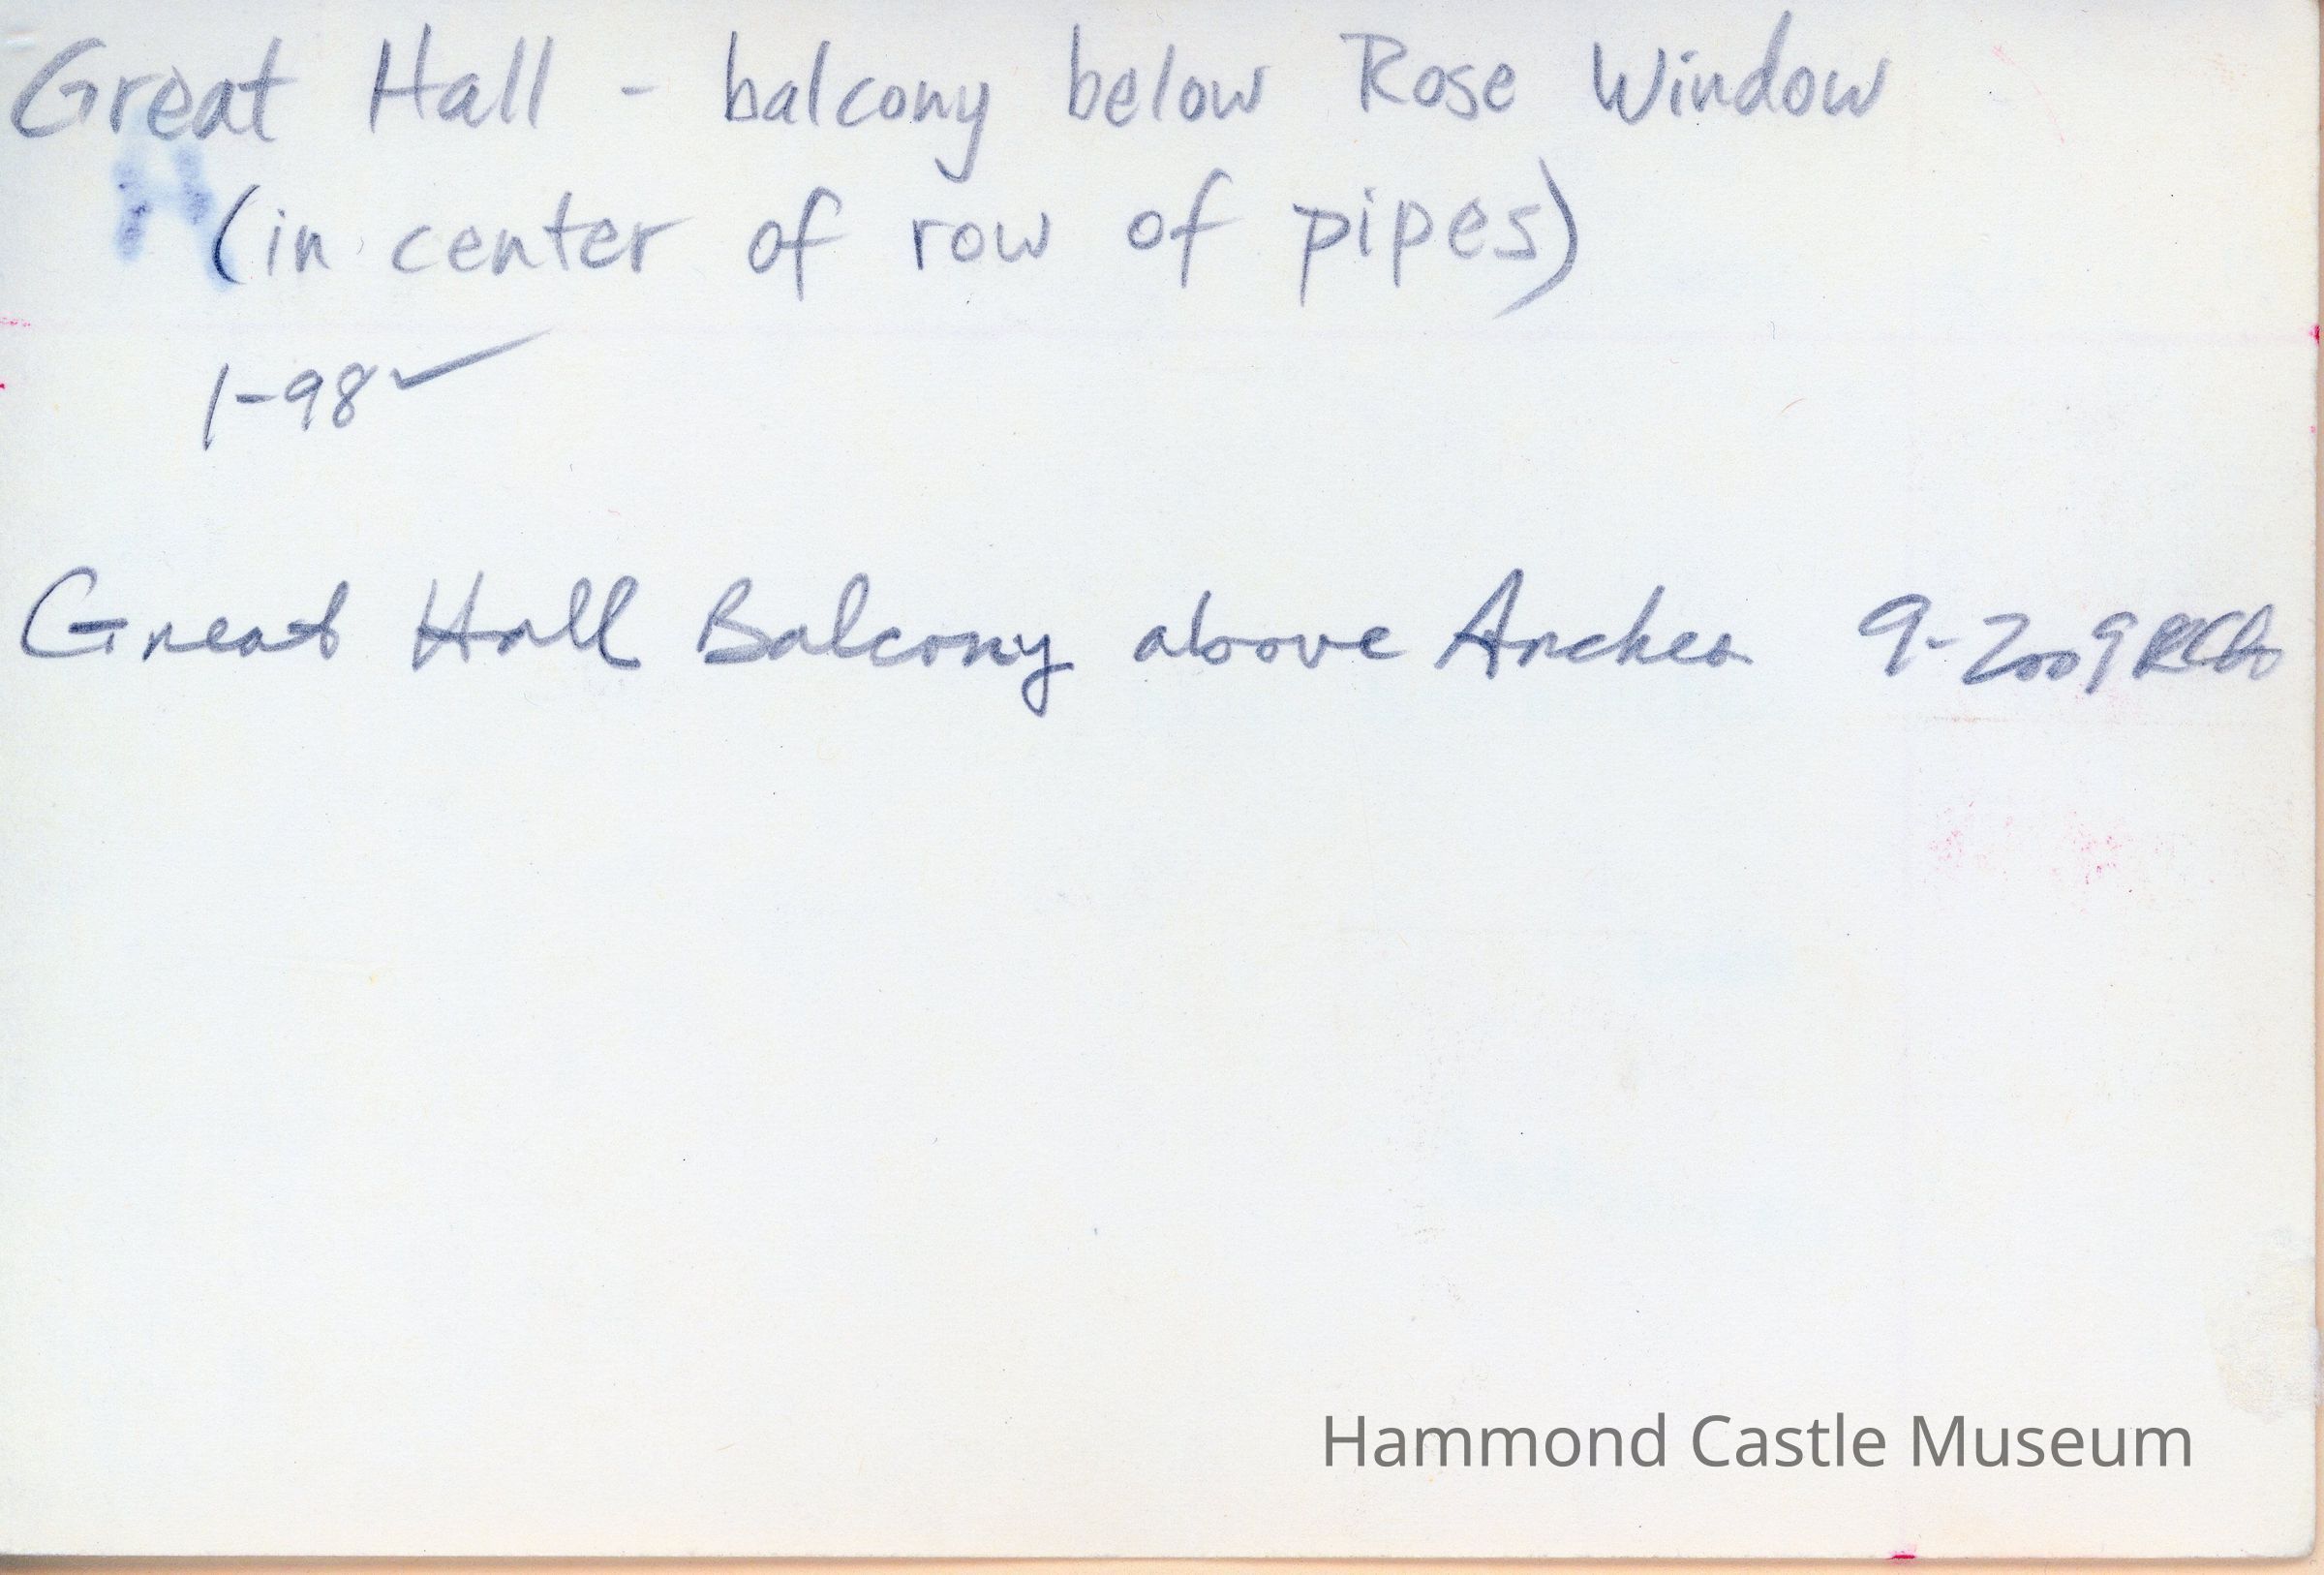 Great Hall - balcony below Rose Window
(in center of row of pipes)
1-98 ✓
Great Hall Balcony above Arches 9-2009
Hammond Castle Museum